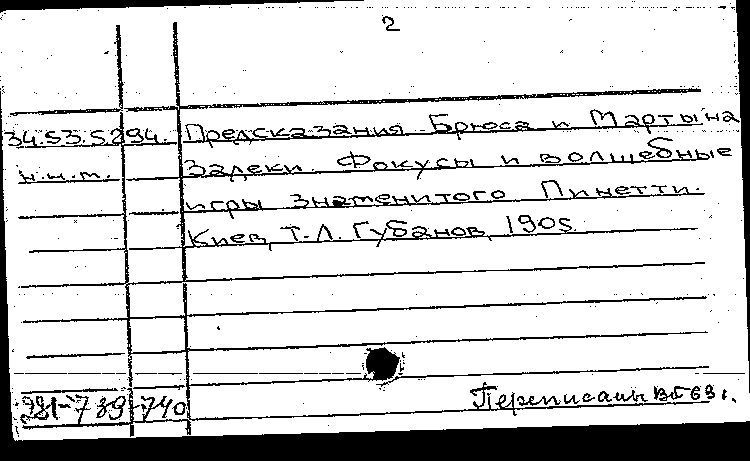 2
34.53.5.294. Предсказания Брюса и Мартына
н.и.т. Задеки. Фокусы и волшебные
игры знаменитого Пинетти.
Киев, Т-Л. Губанов, 1905
281-739-740 Переписаны 1969 г.